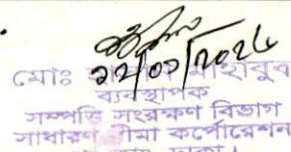 ২২/০১/২০২৬
মোঃ মাহাবুব
ব্যবস্থাপক
সম্পত্তি সংরক্ষণ বিভাগ
সাধারণ বীমা কর্পোরেশন
ঢাকা।